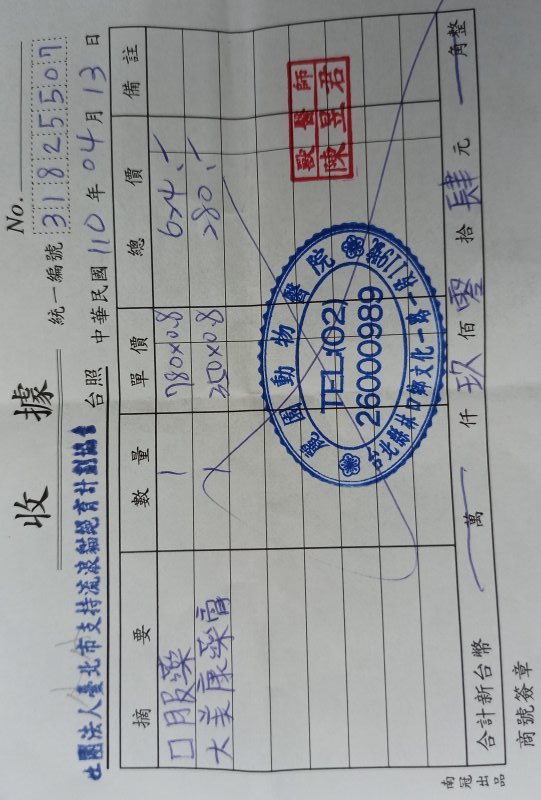 收據
No.
統一編號 31825507
社團法人臺北市支持流浪貓絕育計劃協會 台照 中華民國 110 年 04 月 13 日
摘要 數量 單價 總價 備註
口服藥 1 780×0.8 624.-
大美康藥膏 1 350×0.8 280.-
獸醫師
陳昱君
動物醫院
TEL:(02)
26000989
台北縣林口鄉文化一路一段119號
合計新台幣 萬 仟 玖 佰 零 拾 肆 元 角整
商號簽章
南冠出品